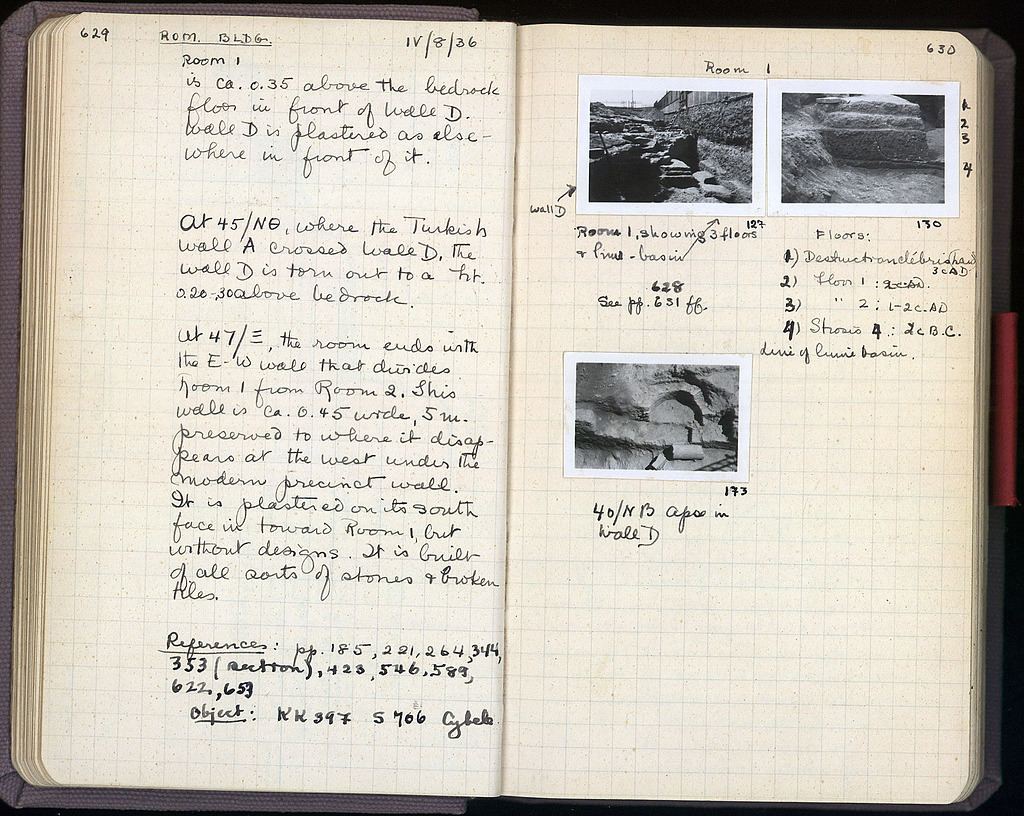 629 ROM. BLDG. IV/8/36
Room 1
is ca. 0.35 above the bedrock
floor in front of Wall D.
Wall D is plastered as else-
where in front of it.
At 45/ΝΘ, where the Turkish
wall A crossed Wall D, the
wall D is torn out to a ht.
0.20-.30 above bedrock.
At 47/Ξ, the room ends with
the E-W wall that divides
Room 1 from Room 2. This
wall is ca. 0.45 wide, 5 m.
preserved to where it disap-
pears at the west under the
modern precinct wall.
It is plastered on its south
face in toward Room 1, but
without designs. It is built
of all sorts of stones & broken
tiles.
References: pp. 185, 221, 264, 344,
353 (section), 423, 546, 589,
622, 653
Object: KK 397 S 706 Cybele
630
Room 1
1
2
3
4
Wall D
127
Room 1, showing 3 floors
& lime-basin
628
See pp. 631 ff.
130
Floors:
1) Destruction débris
3 c AD
2) Floor 1 : 2 c. AD.
3) " 2 : 1-2 c. AD
4) Strosis 4 : 2 c B.C.
Line of lime basin.
173
40/ΝΒ Apse in
Wall D